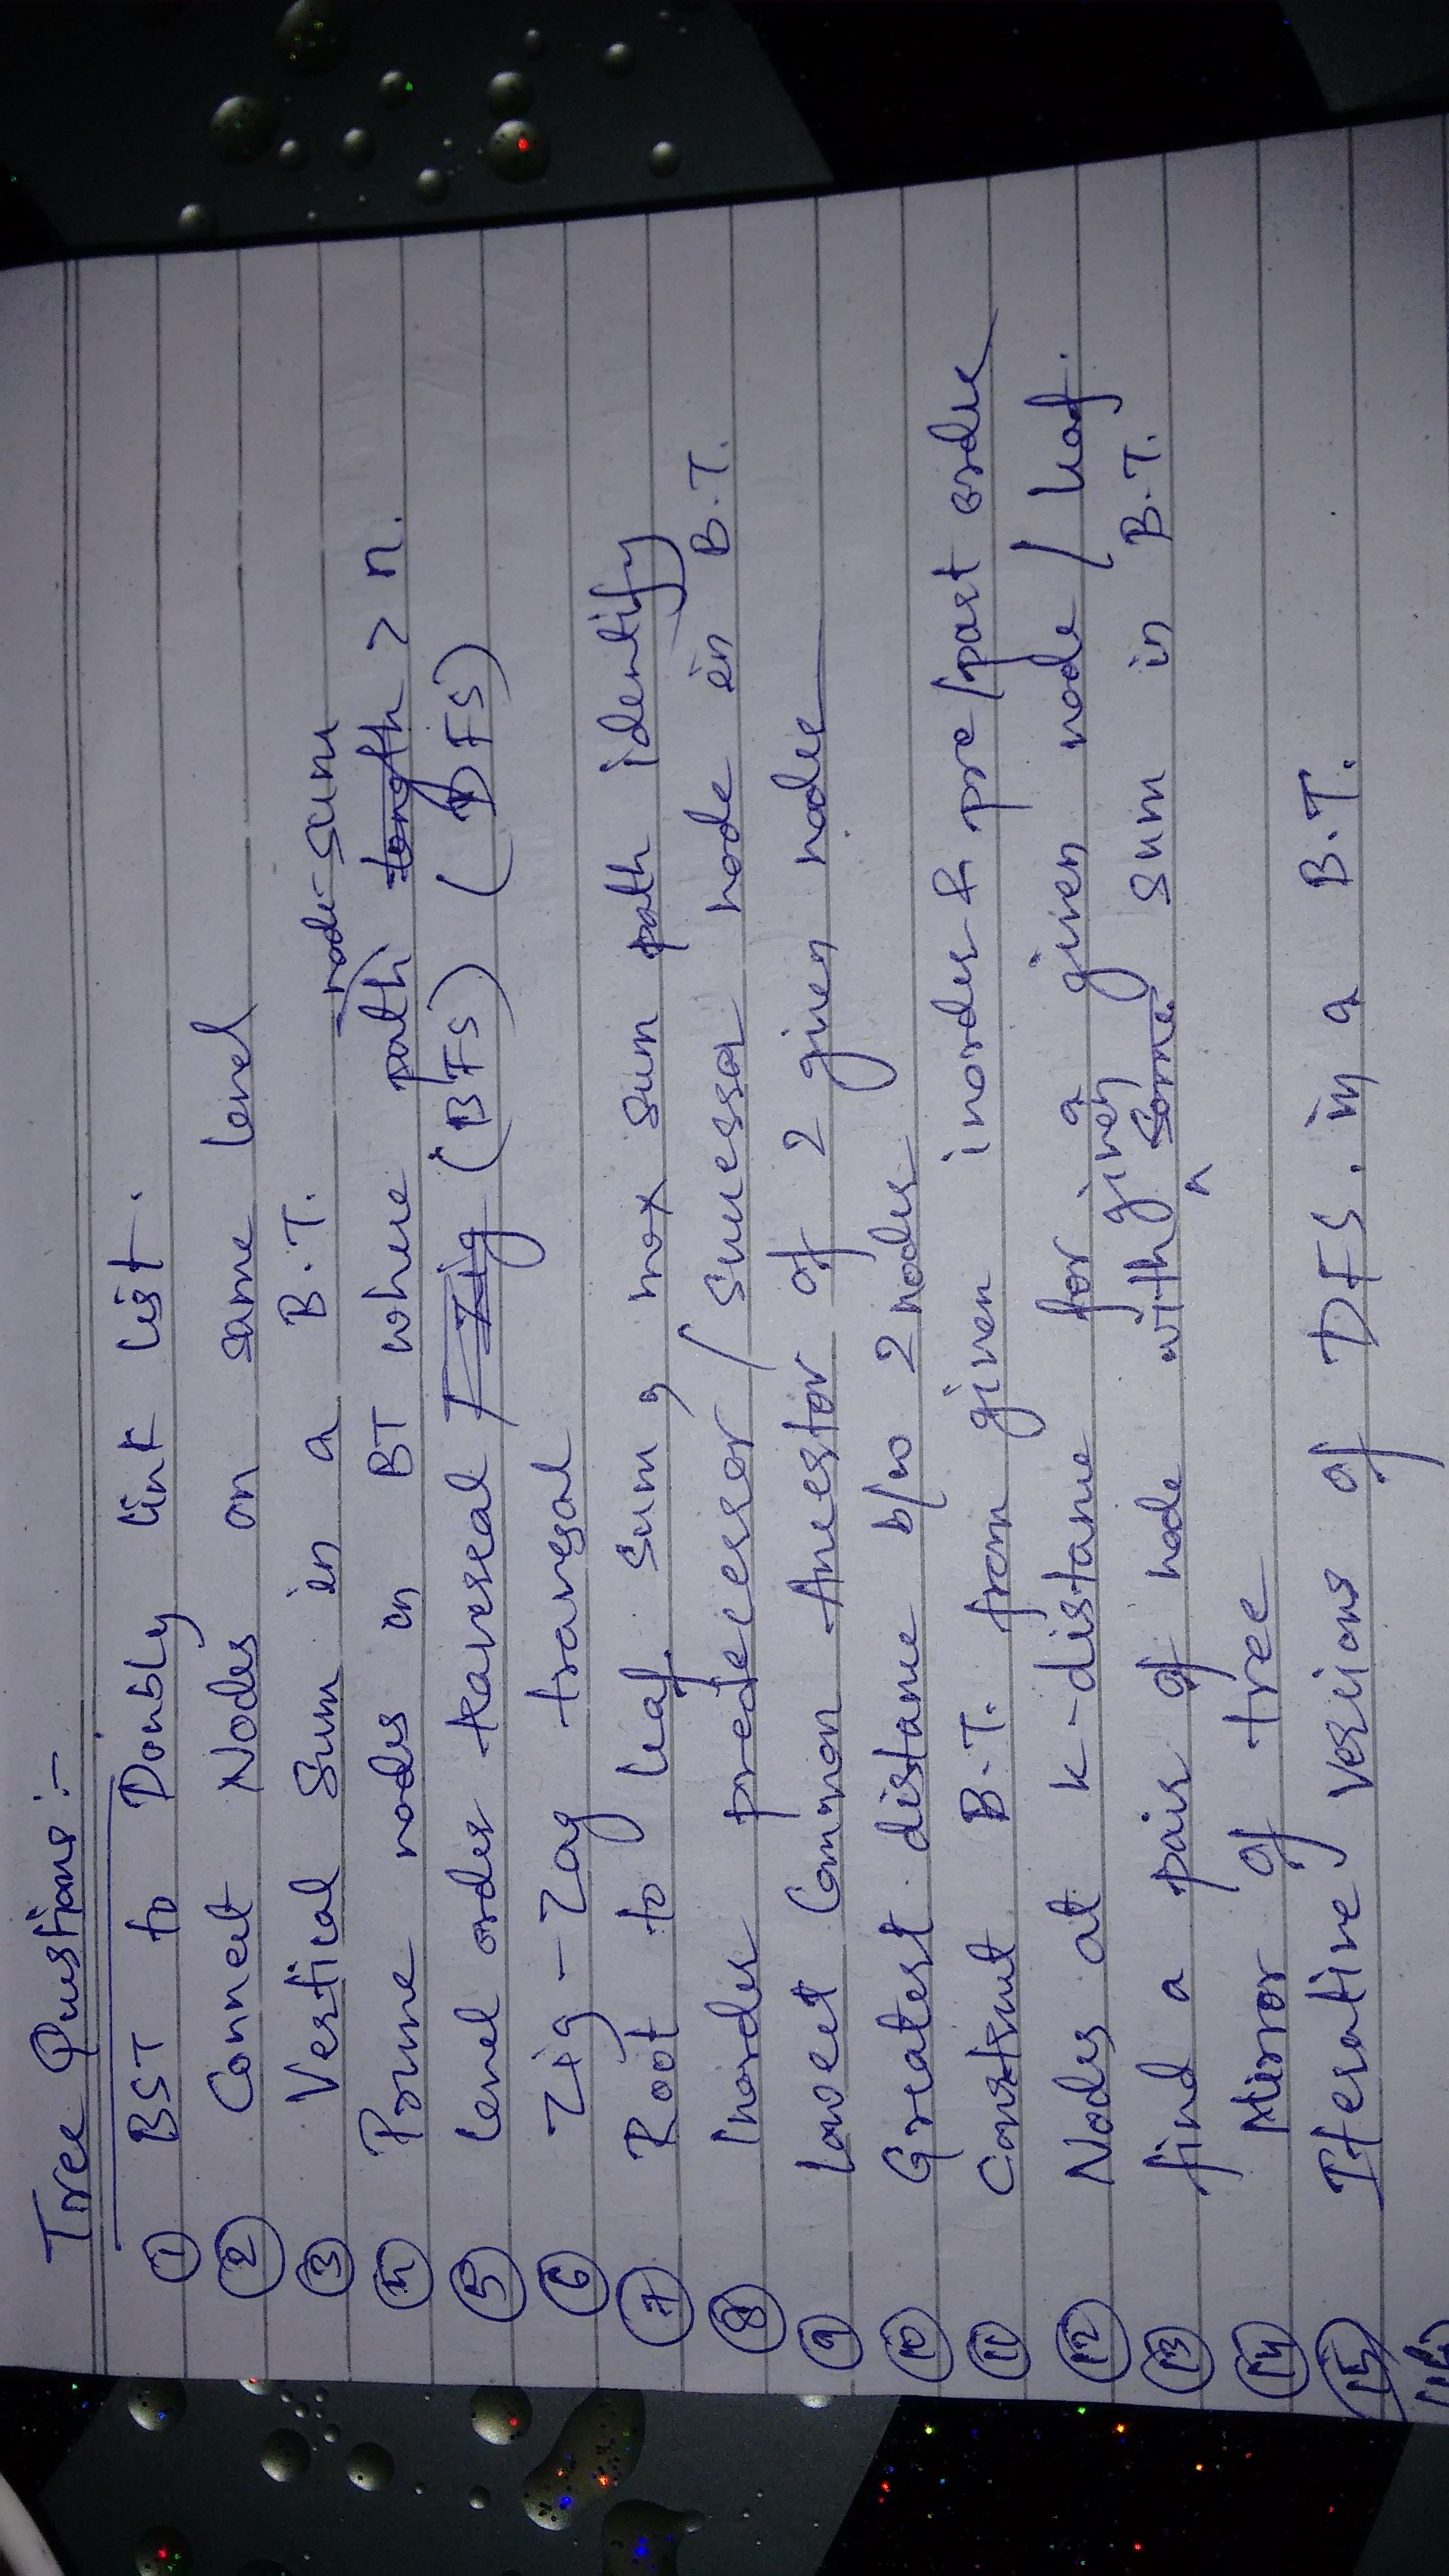 Tree Questions :-
① BST to Doubly link list.
② Connect Nodes on same level
③ Vertical Sum in a B.T.
node-sum
④ Prune nodes in BT where path > n.
⑤ Level order traverseal (BFS) (DFS)
⑥ Zig-Zag traversal
⑦ Root to leaf sum, max sum path identify
⑧ Inorder predecessor / Successor node in B.T.
⑨ Lowest Common Ancestor of 2 given node
⑩ Greatest distance b/w 2 nodes
⑪ Construct B.T. from given inorder & pre/post order
⑫ Nodes at k-distance for a given node / leaf.
⑬ find a pair of node with given sum in B.T.
⑭ Mirror of tree
⑮ Iterative versions of DFS. in a B.T.